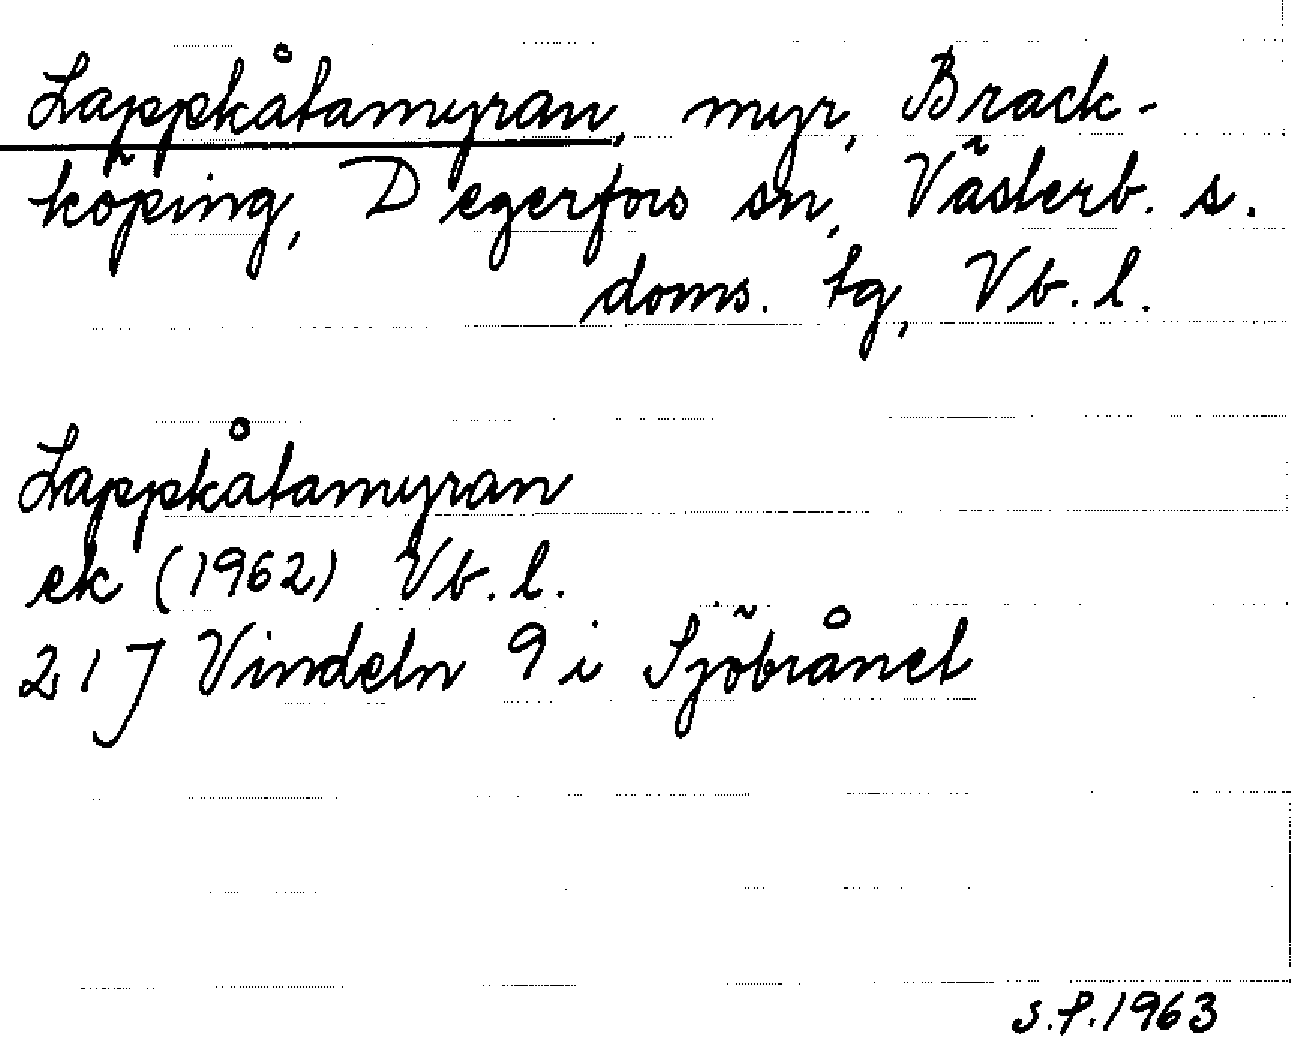 Lappkåtamyran, myr, Brack-
köping, Degerfors sn, Västerb. s.
doms. tg, Vb. l.
Lappkåtamyran
ek (1962) Vb. l.
21J Vindeln 9 i Sjöbrånet
s.f. 1963